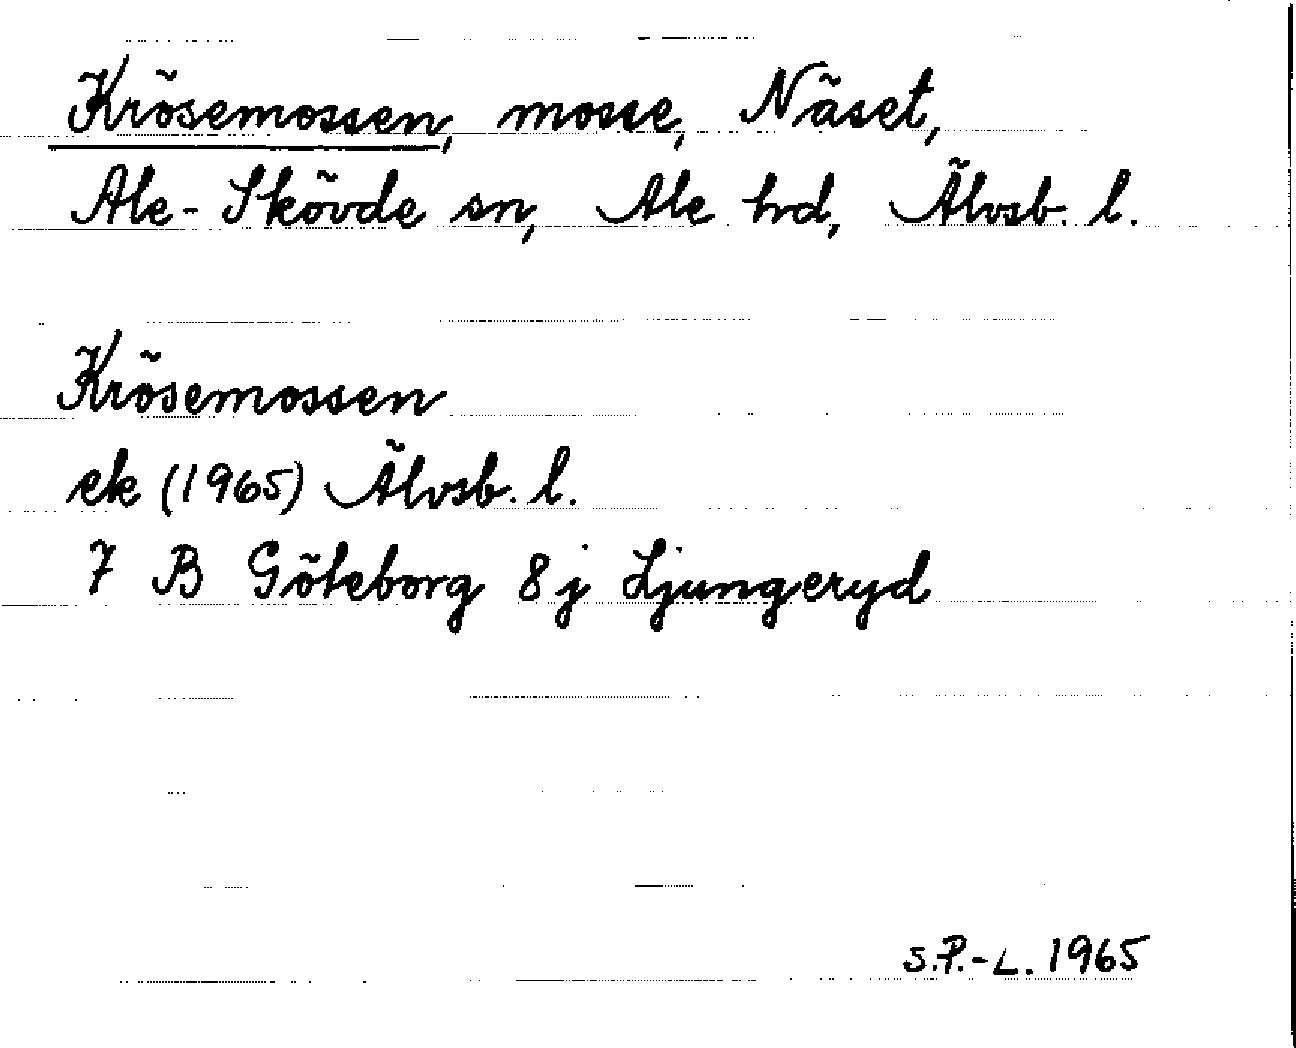 Krösemossen, mosse, Näset,
Ale-Skövde sn, Ale hrd, Älvsb. l.
Krösemossen
ek (1965) Älvsb. l.
7 B Göteborg 8 j Ljungeryd
S.P.-L. 1965